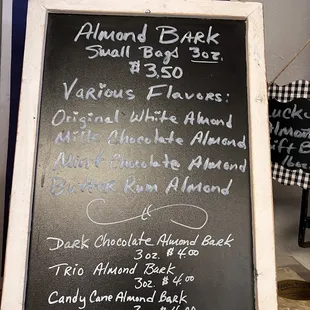 Almond Bark
Small Bags 3oz.
$3.50
Various Flavors:
Original White Almond
Milk Chocolate Almond
Mint Chocolate Almond
Butter Rum Almond
Dark Chocolate Almond Bark
3oz. $4.00
Trio Almond Bark
3oz. $4.00
Candy Cane Almond Bark
Almon